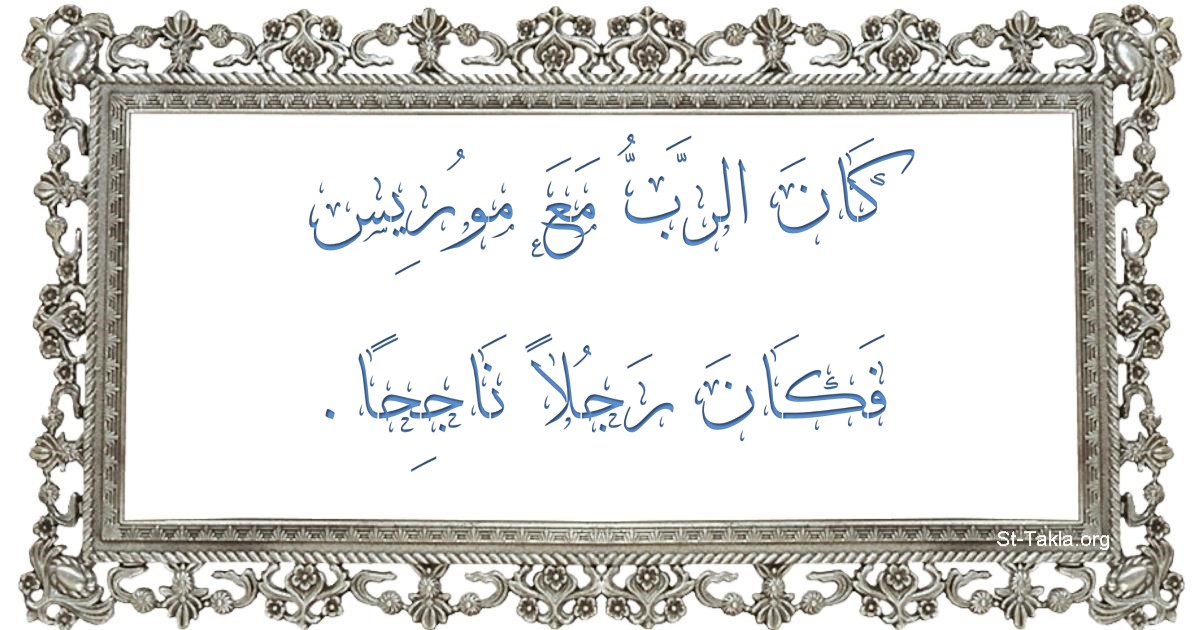 كَانَ الرَّبُّ مَعَ مورُِيس
فَكَانَ رَجُلاً نَاجِحًا .
St-Takla.org